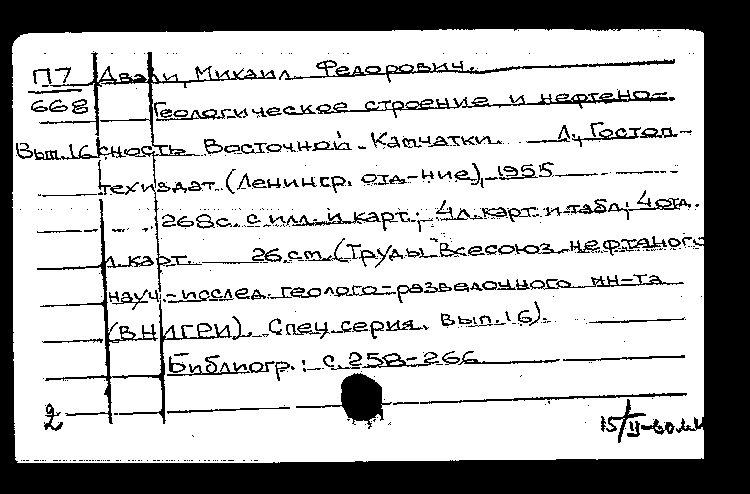 П7 Двали, Михаил Федорович.
668 Геологическое строение и нефтено-
Вып.16 сность Восточной Камчатки. Л., Гостоп-
техиздат (Ленингр. отд-ние), 1955
268с. с илл. и карт.; 4л. карт. и табл; 4 отд.
л. карт. 26 см. (Труды Всесоюз. нефтяного
науч-послед. геолого-разведочного ин-та
(ВНИГРИ). Спец. серия. Вып.16).
Библиогр.: с. 258-266
2 15/II-60